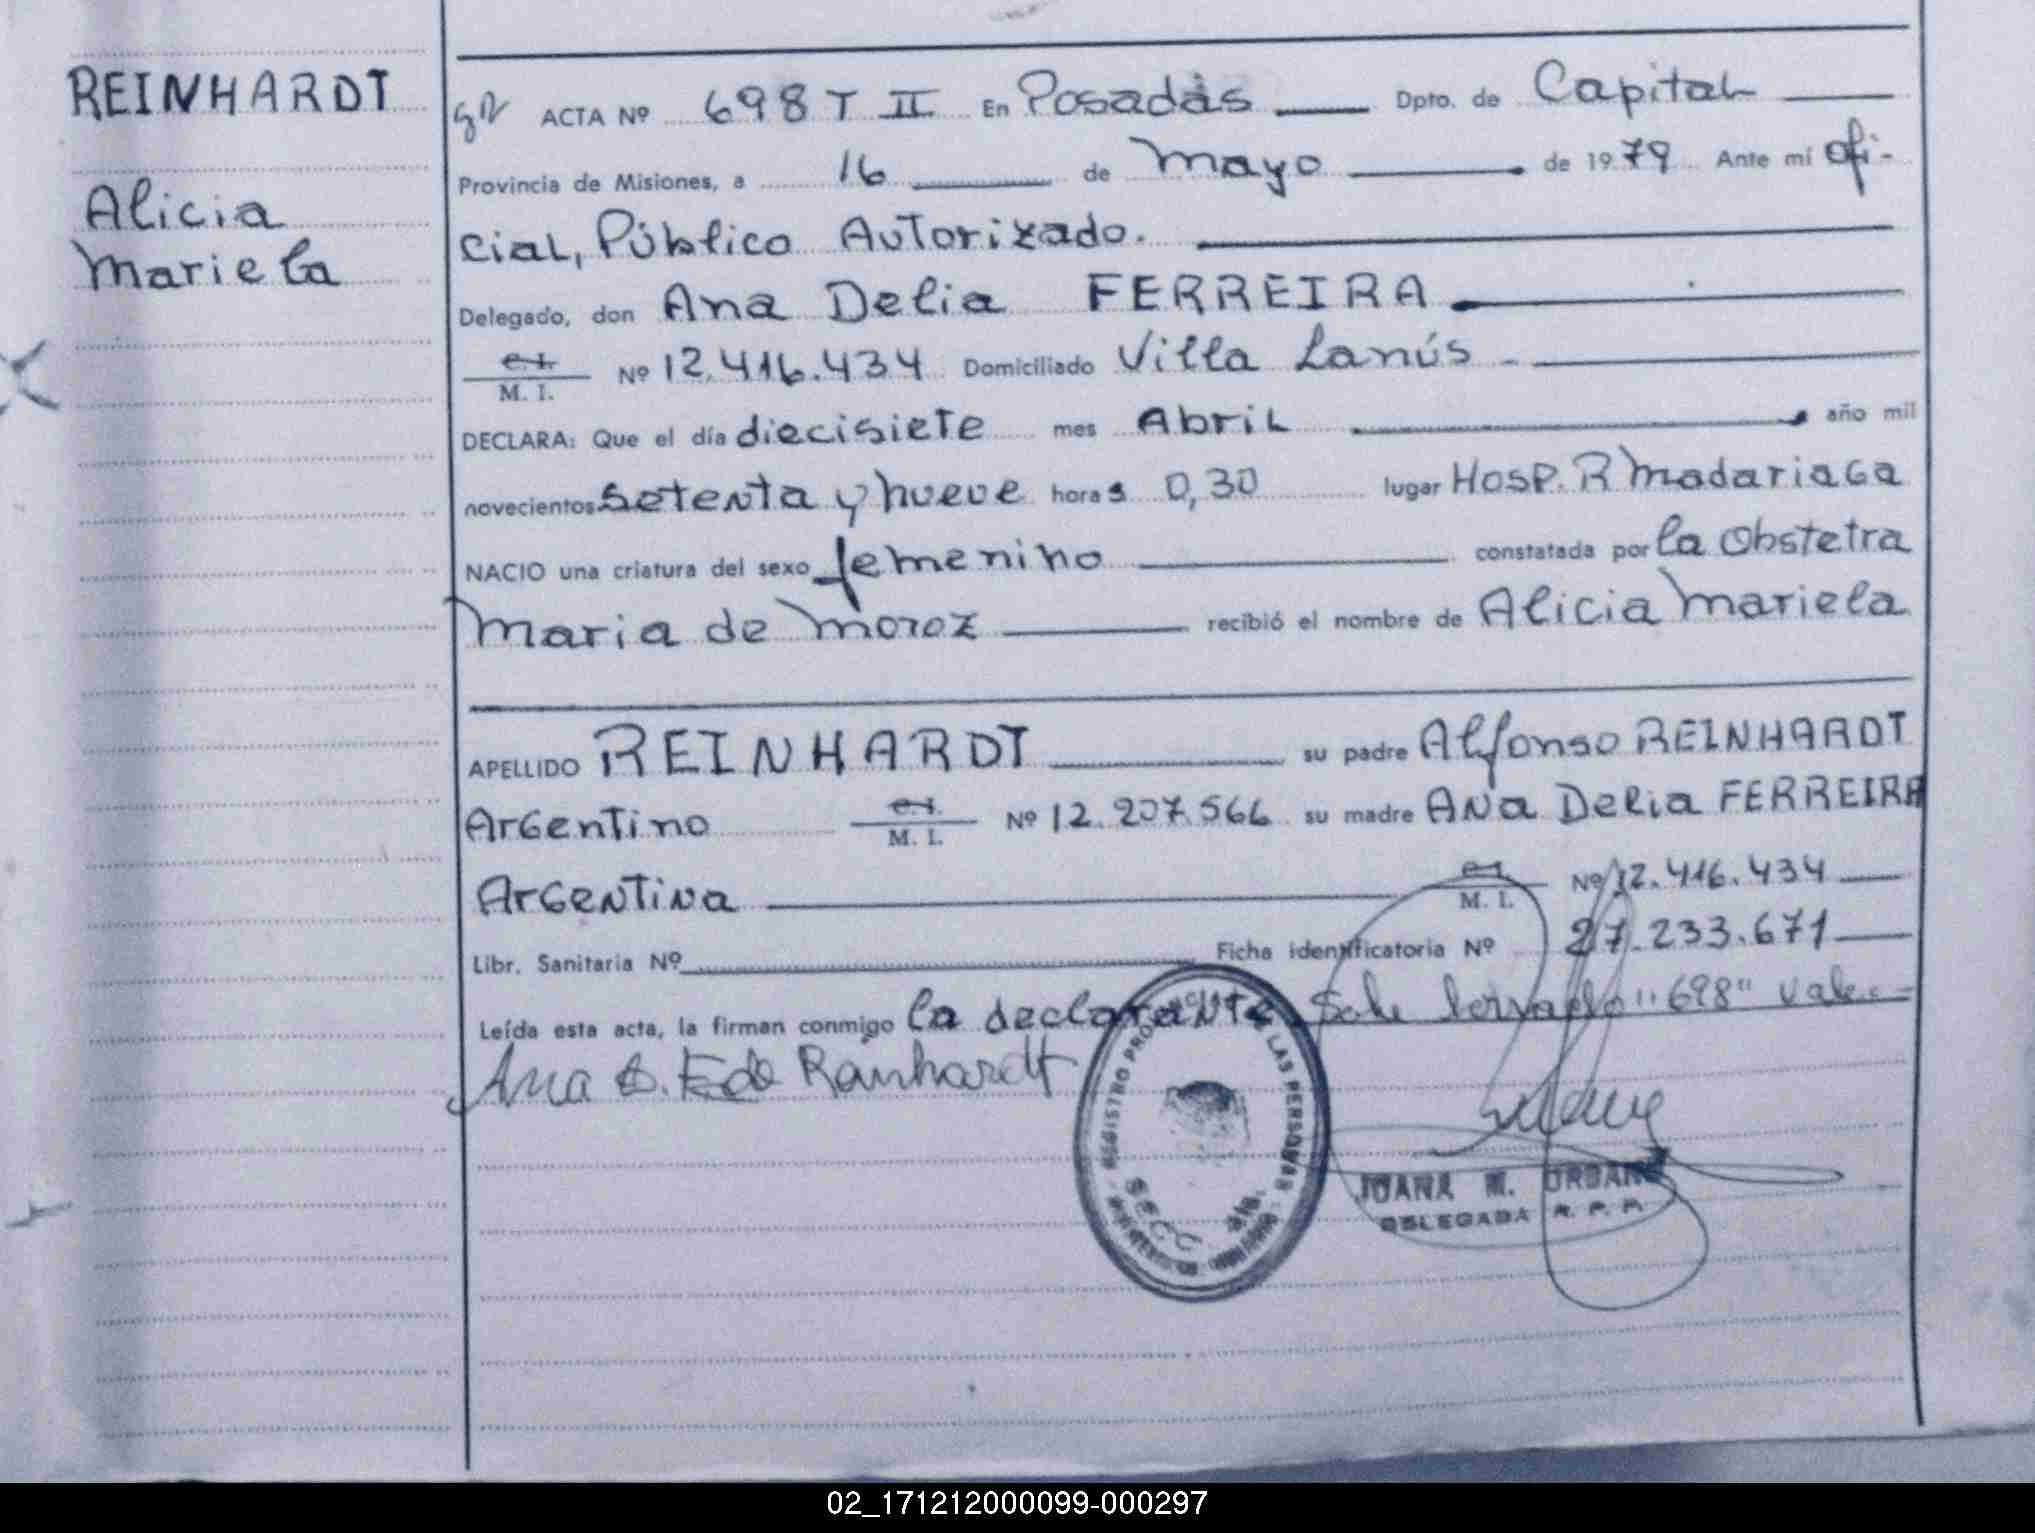 REINHARDT
Alicia
Mariela
ACTA Nº 698 T II En Posadas Dpto. de Capital
Provincia de Misiones, a 16 de Mayo de 1979 Ante mí ofi-
cial, Público Autorizado.
Delegado, don Ana Delia FERREIRA
M. I. Nº 12.416.434 Domiciliado Villa Lanús
DECLARA: Que el día diecisiete mes Abril año mil
novecientos setenta y nueve horas 0,30 lugar Hosp. R Madariaga
NACIO una criatura del sexo femenino constatada por la Obstetra
Maria de Moroz recibió el nombre de Alicia Mariela
APELLIDO REINHARDT su padre Alfonso REINHARDT
Argentino M. I. Nº 12.207.566 su madre Ana Delia FERREIRA
Argentina M. I. Nº 12.416.434
Libr. Sanitaria Nº Ficha identificatoria Nº 27.233.671
Leída esta acta, la firman conmigo la declarante, "698" vale.-
Ana D. F. de Reinhardt
REGISTRO PROVINCIAL DE LAS PERSONAS
SECC
JUANA M. URBANO
DELEGADA R. P. P.
02_171212000099-000297